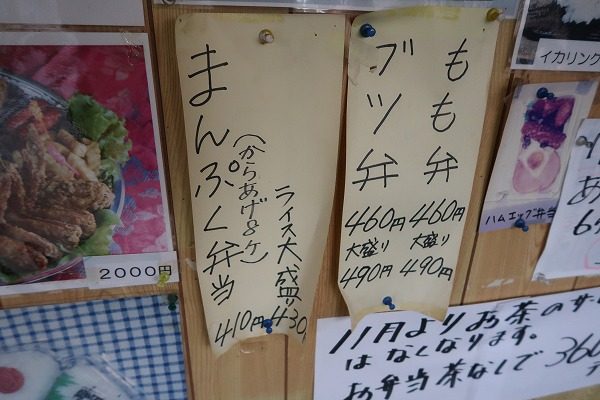 もも弁 460円
大盛り 490円
ブツ弁 460円
大盛り 490円
まんぷく弁当 410円
(からあげ8ケ)
ライス大盛り 430
2000円
イカリング
ハムエッグ弁当
11月よりお茶のサ
はなくなります。
お弁当茶なしで360